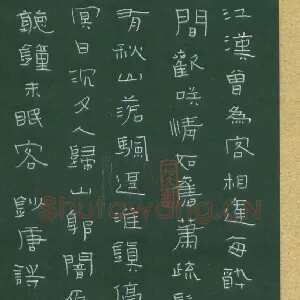 江漢曾為客相逢每醉
間歡咲情如舊蕭疏
有秋山落颿逗淮鎮停
冥日沉夕人歸山郭闇
聽鐘未眠客 鈔唐詩
Shufawang.CN